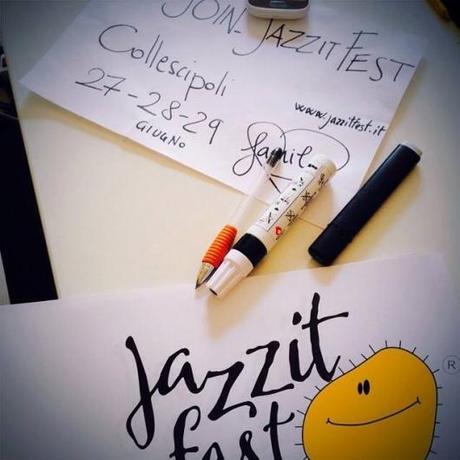 JOIN- JAZZIT FEST
Collescipoli
27-28-29
GIUGNO
www.jazzitfest.it
jazzit
fest
R